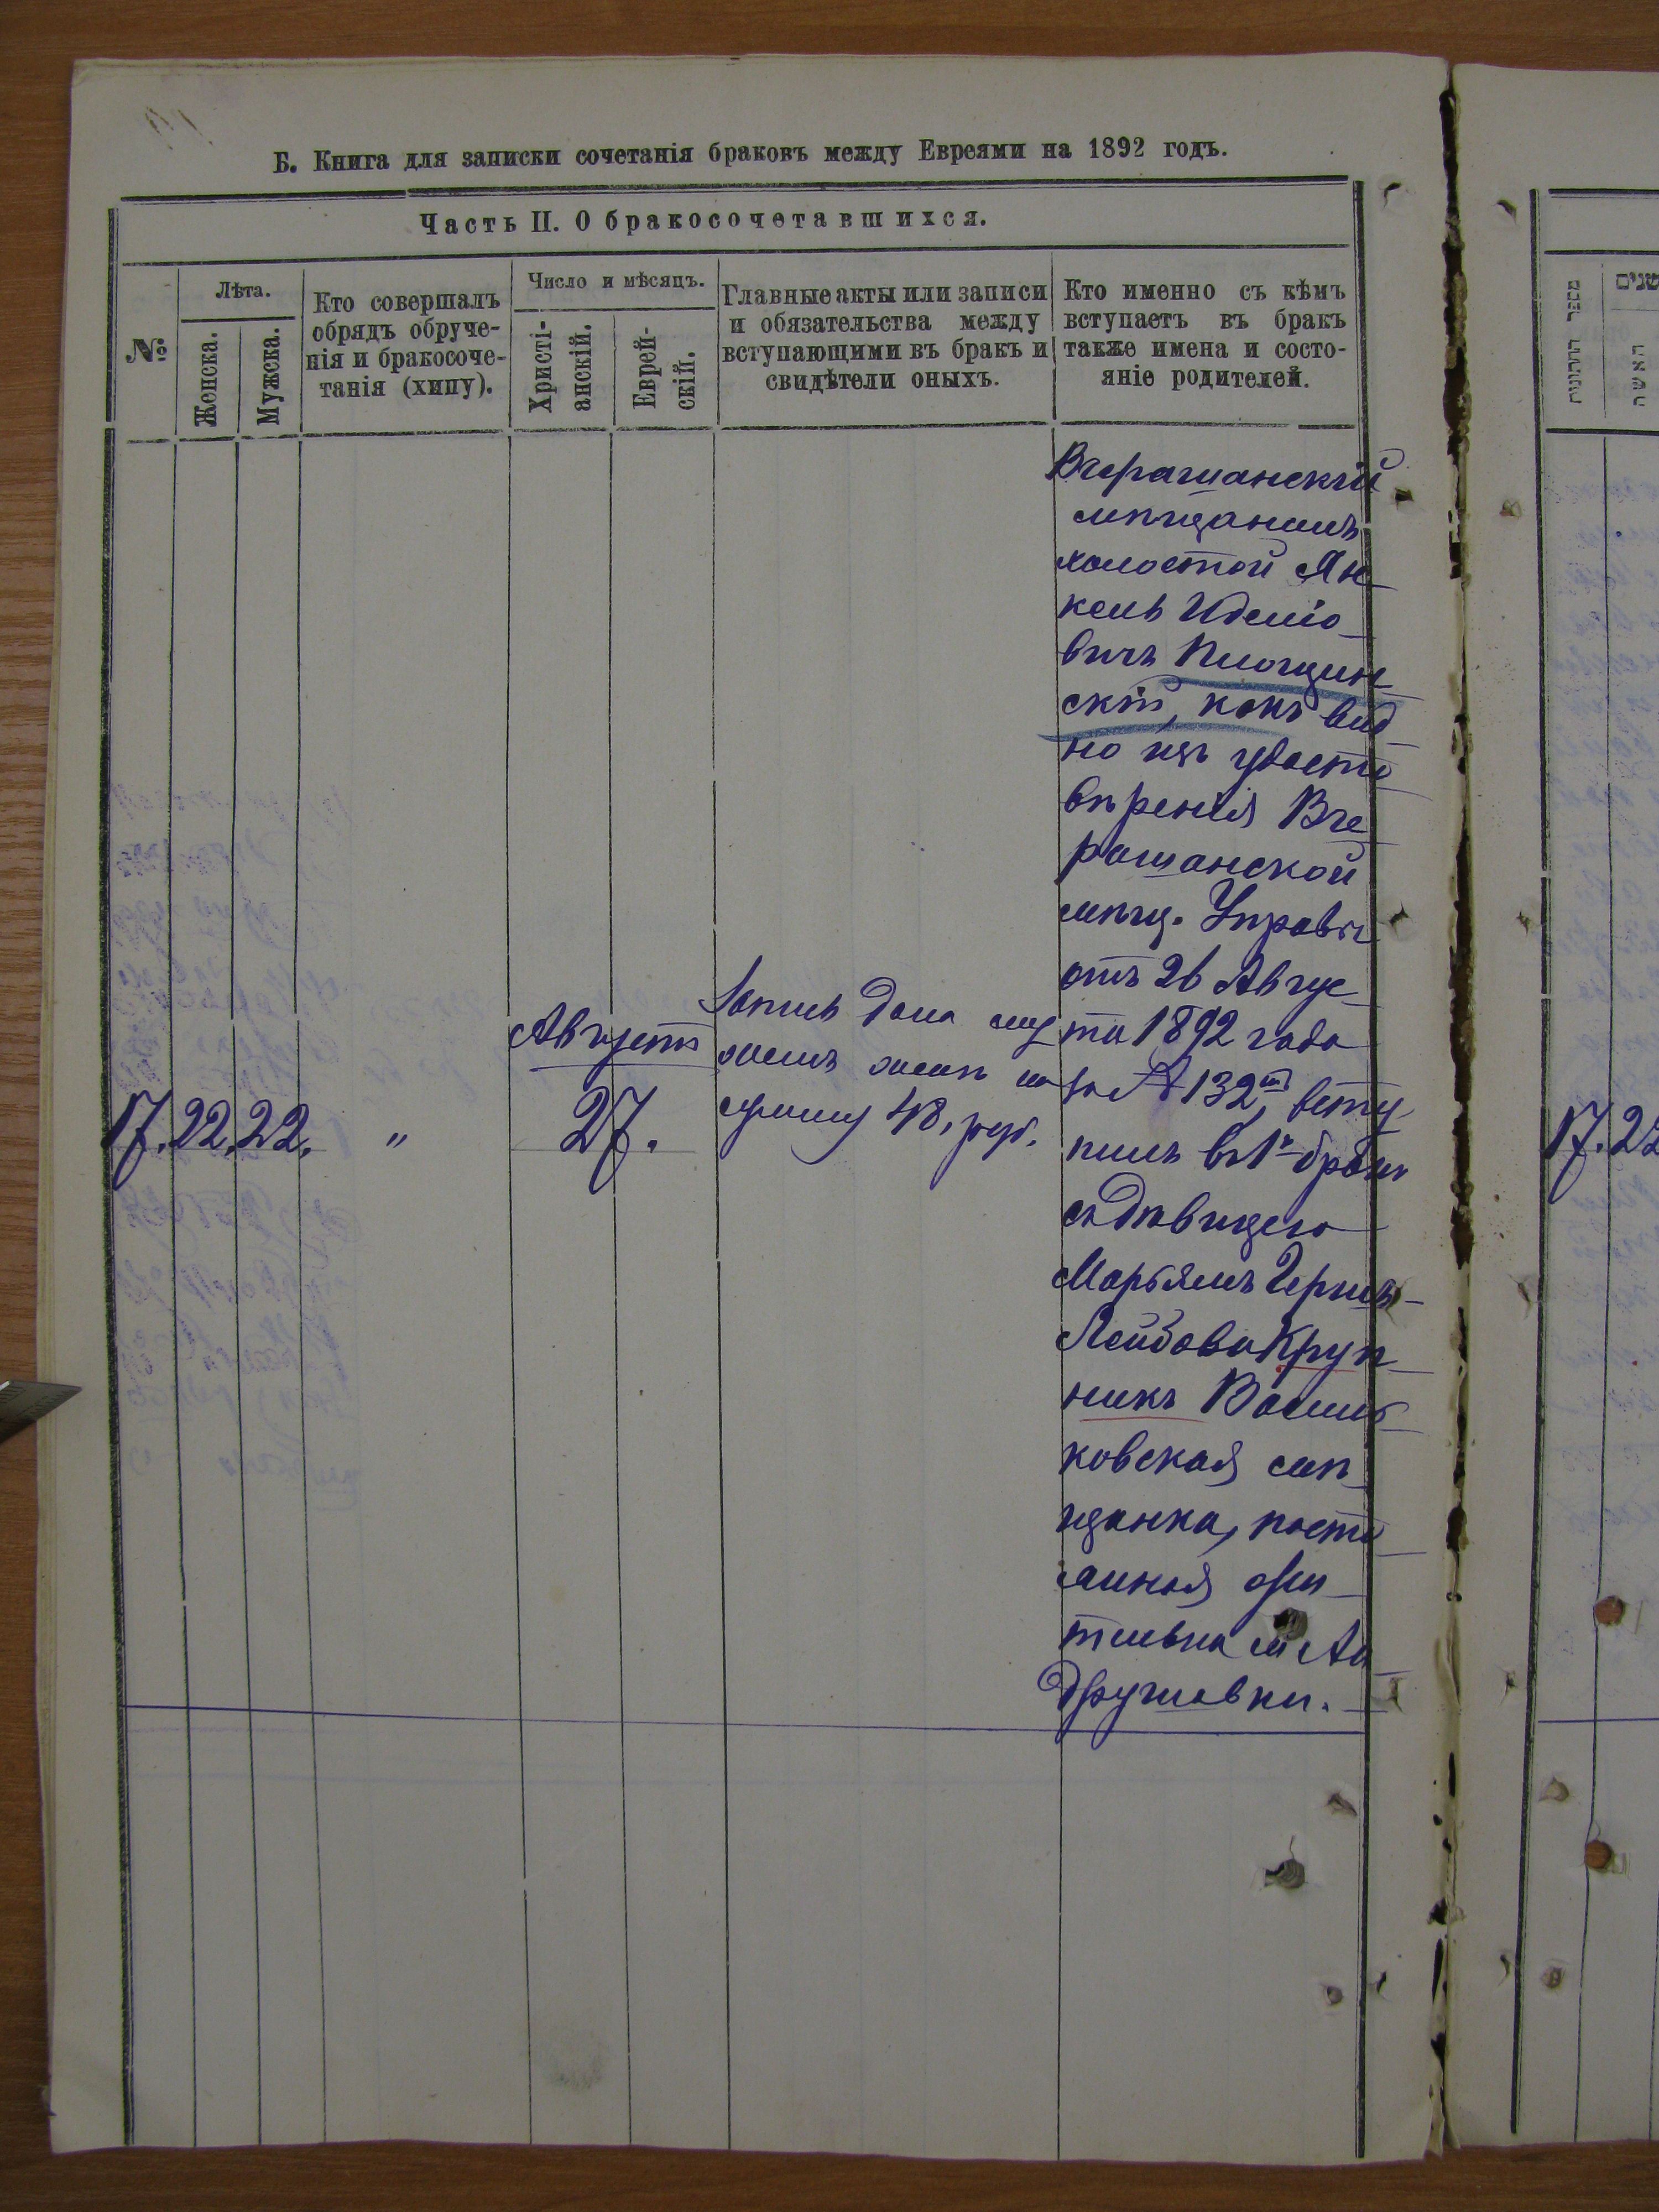 Б. Книга для записки сочетанія браковъ между Евреями на 1892 годъ.
Часть II. О бракосочетавшихся.
№
Лѣта.
Женска.
Мужска.
Кто совершалъ
обрядъ обруче-
нія и бракосоче-
танія (хипу).
Число и мѣсяцъ.
Христі-
анскій.
Еврей-
скій.
Главные акты или записи
и обязательства между
вступающими въ бракъ и
свидѣтели оныхъ.
Кто именно съ кѣмъ
вступаетъ въ бракъ
также имена и состо-
яніе родителей.
17.
22.
22.
"
Августъ
27.
Запись дана му
жемъ женѣ на
сумму 48, руб.
Вчерашанскій
мѣщанинъ
холостой Ян-
кель Идель
вичъ Площин-
скій, какъ вид-
но изъ удосто-
вѣренія Вче-
рашанской
мѣщ. Управы
отъ 26 Авгус-
та 1892 года
за № 132м, всту
пилъ въ 1й бракъ
съ дѣвицею
Марьямъ Черна-
Лейбова Круп-
никъ Василь-
ковская мѣ-
щанка, посто-
янная жи-
телька м Ан-
друшовки.
מספר החתונות
שנים
האשה
17.
22